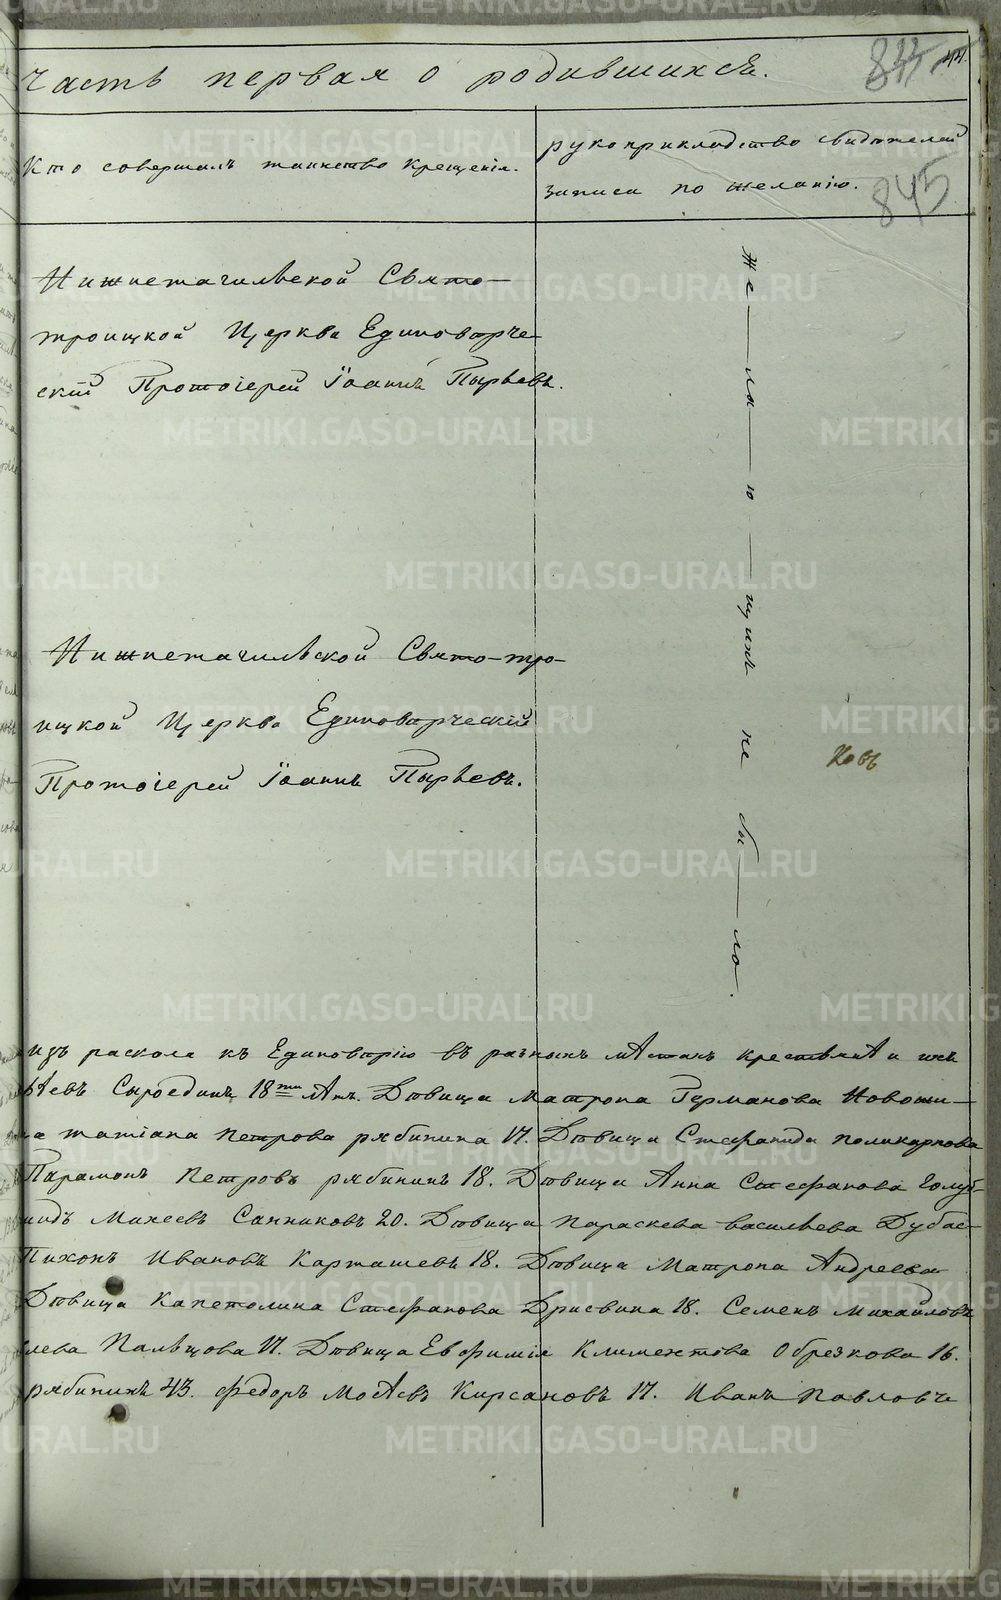 Часть первая о родившихся.
844 44.
Кто совершалъ таинство крещенія.
рукоприкладство свидѣтелей
записи по желанію.
845
Нижнетагильской Свято-
троицкой Церкви Единовѣрче-
скій Протоіерей Іоаннъ Пырьевъ.
Же-ла-ю-щихъ не бы-ло.
Нижнетагильской Свято-тро-
ицкой Церкви Единовѣрческій
Протоіерей Іоаннъ Пырьевъ.
Ковъ
изъ раскола къ Единовѣрію въ разныхъ мѣстахъ крестьяне и ихъ
Сыроединъ 18ти лѣт. Дѣвица матрона Германова Новоши-
на татіана петрова рябинина 17. Дѣвица Стефанида поликарпова
Парамонъ Петровъ рябининъ 18. Дѣвица Анна Стефанова Голуб-
Михеевъ Санниковъ 20. Дѣвица параскева васильева Дубас-
Тихонъ Ивановъ Карташевъ 18. Дѣвица Матрона Андреева
Дѣвица Капетолина Стефанова Дрисвина 18. Семенъ михайловъ
Пальцова 17. Дѣвица Евфимія Климентова Обрезкова 16.
рябининъ 43. федоръ Моѣевъ Кирсановъ 17. Иванъ Павловъ
METRIKI.GASO-URAL.RU